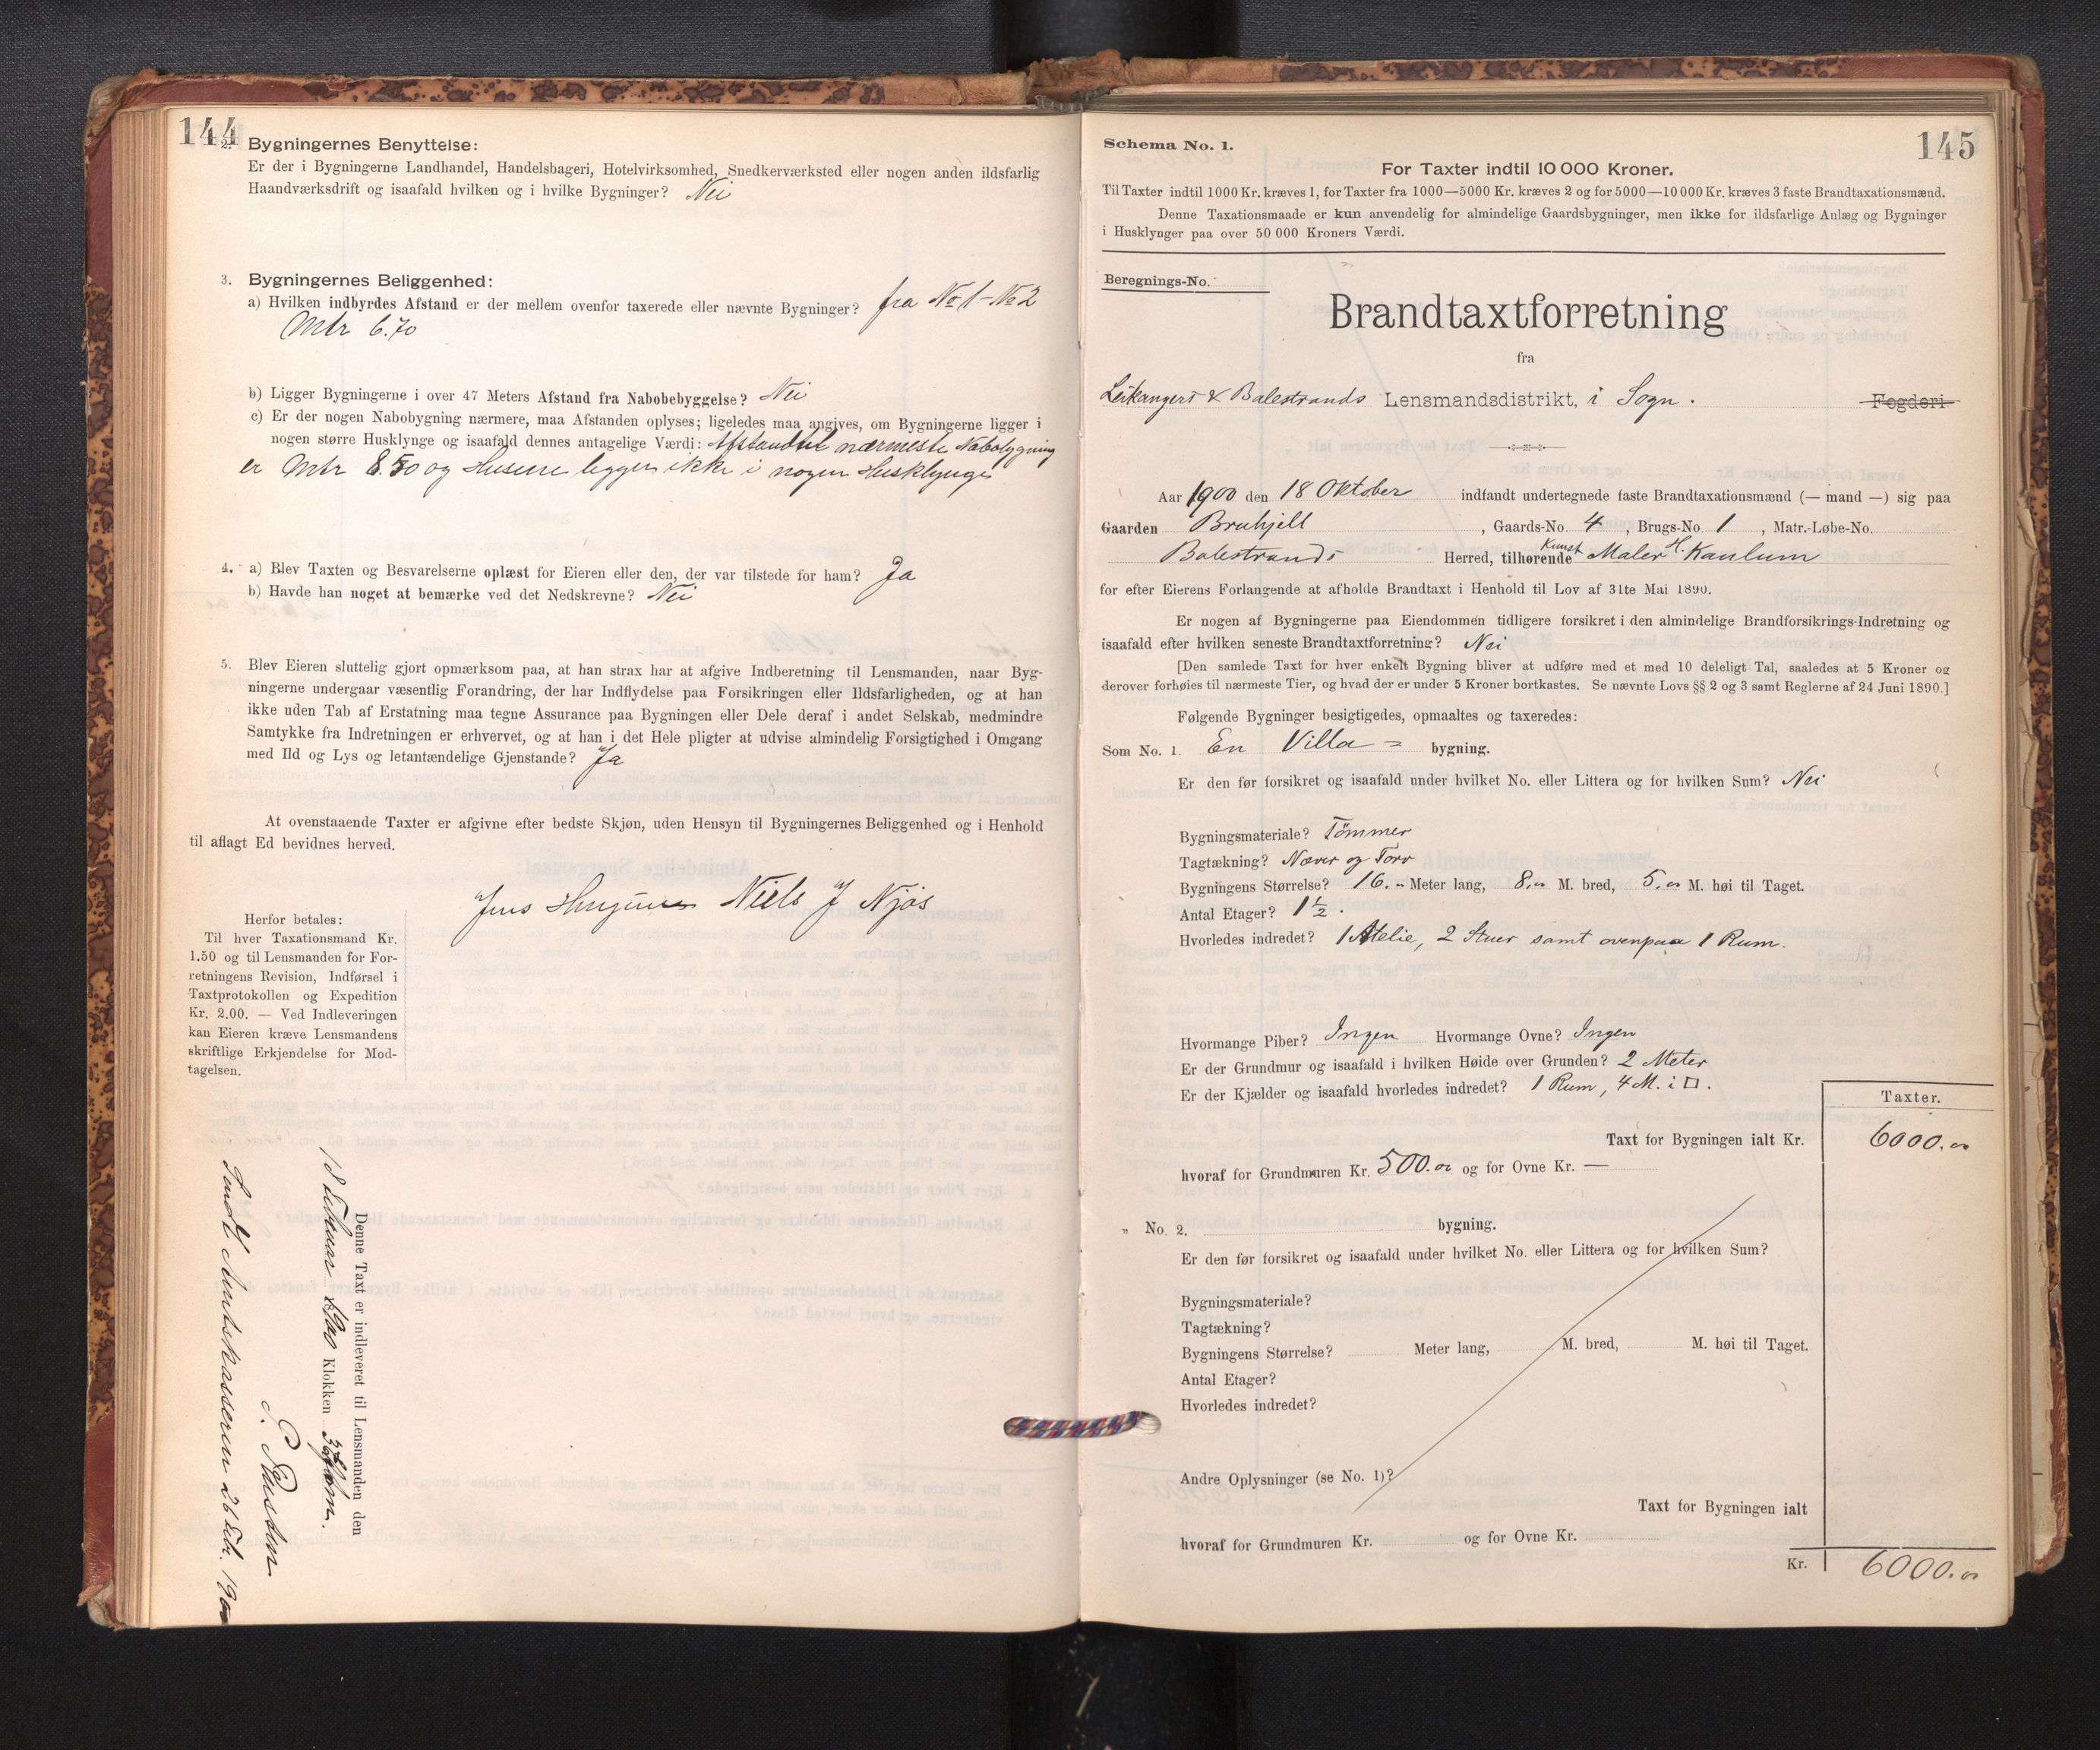 144
2. Bygningernes Benyttelse:
Er der i Bygningerne Landhandel, Handelsbageri, Hotelvirksomhed, Snedkerværksted eller nogen anden ildsfarlig
Haandværksdrift og isaafald hvilken og i hvilke Bygninger? Nei
3. Bygningernes Beliggenhed:
a) Hvilken indbyrdes Afstand er der mellem ovenfor taxerede eller nævnte Bygninger? fra No 1 - No 2
Mtr 6.70
b) Ligger Bygningerne i over 47 Meters Afstand fra Nabobebyggelse? Nei
c) Er der nogen Nabobygning nærmere, maa Afstanden oplyses; ligeledes maa angives, om Bygningerne ligger i
nogen større Husklynge og isaafald dennes antagelige Værdi: Afstand til nærmeste Nabobygning
er Mtr 8.50 og Husene ligger ikke i nogen Husklynge
4. a) Blev Taxten og Besvarelserne oplæst for Eieren eller den, der var tilstede for ham? Ja
b) Havde han noget at bemærke ved det Nedskrevne? Nei
5. Blev Eieren sluttelig gjort opmærksom paa, at han strax har at afgive Indberetning til Lensmanden, naar Byg-
ningerne undergaar væsentlig Forandring, der har Indflydelse paa Forsikringen eller Ildsfarligheden, og at han
ikke uden Tab af Erstatning maa tegne Assurance paa Bygningen eller Dele deraf i andet Selskab, medmindre
Samtykke fra Indretningen er erhvervet, og at han i det Hele pligter at udvise almindelig Forsigtighed i Omgang
med Ild og Lys og letantændelige Gjenstande? Ja
At ovenstaaende Taxter er afgivne efter bedste Skjøn, uden Hensyn til Bygningernes Beliggenhed og i Henhold
til aflagt Ed bevidnes herved.
Jens Niels J Njøs
Herfor betales:
Til hver Taxationsmand Kr.
1.50 og til Lensmanden for For-
retningens Revision, Indførsel i
Taxtprotokollen og Expedition
Kr. 2.00. — Ved Indleveringen
kan Eieren kræve Lensmandens
skriftlige Erkjendelse for Mod-
tagelsen.
Denne Taxt er indleveret til Lensmanden den
18 Februar 1900 Klokken 3 Efterm.
Sendt Amtskasseren 26 Febr. 1900
145
Schema No. 1.
For Taxter indtil 10 000 Kroner.
Til Taxter indtil 1000 Kr. kræves 1, for Taxter fra 1000—5000 Kr. kræves 2 og for 5000—10 000 Kr. kræves 3 faste Brandtaxationsmænd.
Denne Taxationsmaade er kun anvendelig for almindelige Gaardsbygninger, men ikke for ildsfarlige Anlæg og Bygninger
i Husklynger paa over 50 000 Kroners Værdi.
Beregnings-No.
Brandtaxtforretning
fra
Leikangers & Balestrands Lensmandsdistrikt, i Sogn. Fogderi
Aar 1900 den 18 Oktober indfandt undertegnede faste Brandtaxationsmænd (— mand —) sig paa
Gaarden Bruhjell, Gaards-No. 4, Brugs-No. 1, Matr.-Løbe-No.
Balestrands Herred, tilhørende Kunst Maler H. Kaulum
for efter Eierens Forlangende at afholde Brandtaxt i Henhold til Lov af 31te Mai 1890.
Er nogen af Bygningerne paa Eiendommen tidligere forsikret i den almindelige Brandforsikrings-Indretning og
isaafald efter hvilken seneste Brandtaxtforretning? Nei
[Den samlede Taxt for hver enkelt Bygning bliver at udføre med et med 10 deleligt Tal, saaledes at 5 Kroner og
derover forhøies til nærmeste Tier, og hvad der er under 5 Kroner bortkastes. Se nævnte Lovs §§ 2 og 3 samt Reglerne af 24 Juni 1890.]
Følgende Bygninger besigtigedes, opmaaltes og taxeredes:
Som No. 1. En Villa = bygning.
Er den før forsikret og isaafald under hvilket No. eller Littera og for hvilken Sum? Nei
Bygningsmateriale? Tömmer
Tagtækning? Næver og Torv
Bygningens Størrelse? 16.- Meter lang, 8.00 M. bred, 5.00 M. høi til Taget.
Antal Etager? 1½.
Hvorledes indredet? 1 Atelie, 2 Stuer samt ovenpaa 1 Rum.
Hvormange Piber? Ingen Hvormange Ovne? Ingen
Er der Grundmur og isaafald i hvilken Høide over Grunden? 2 Meter
Er der Kjælder og isaafald hvorledes indredet? 1 Rum, 4 M. i □.
Taxter.
Taxt for Bygningen ialt Kr. 6000.00
hvoraf for Grundmuren Kr. 500.00 og for Ovne Kr. —
„ No. 2. bygning.
Er den før forsikret og isaafald under hvilket No. eller Littera og for hvilken Sum?
Bygningsmateriale?
Tagtækning?
Bygningens Størrelse? Meter lang, M. bred, M. høi til Taget.
Antal Etager?
Hvorledes indredet?
Andre Oplysninger (se No. 1)?
Taxt for Bygningen ialt
hvoraf for Grundmuren Kr. og for Ovne Kr.
Kr. 6000.00